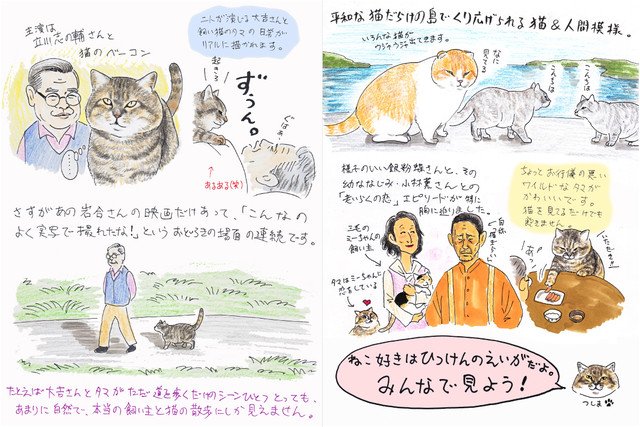 主演は
立川志の輔さんと
猫のベーコン
二人が演じる大吉さんと
飼い猫のタマの日常が
リアルに描かれます。
起きろ
ずぅん。
ぐはぁ
↑
あるある(笑)
さすがあの岩合さんの映画だけあって、「こんなの
よく実写で撮れたな!」というおどろきの場面の連続です。
たとえば大吉さんとタマがただ道を歩くだけのシーンひとつとっても、
あまりに自然で、本当の飼い主と猫の散歩にしか見えません。
平和な猫だらけの島でくり広げられる猫&人間模様。
いろんな猫が
ウジャウジャ出てきます。
なに
見てる
こんちは
こんちは
様子のいい銀粉蝶さんと、その
幼ななじみ・小林薫さんとの
「老いらくの恋」エピソードが特に
胸に迫りました。
三毛の
ミーちゃんの
飼い主
タマはミーちゃんに
恋をしている
ちょっとお行儀の悪い
ワイルドなタマが
かわいいです。
猫を見てるだけでも
飽きません。
あっ
いただきます
ねこ好きはひっけんのえいがだよ。
みんなで見よう!
つしま